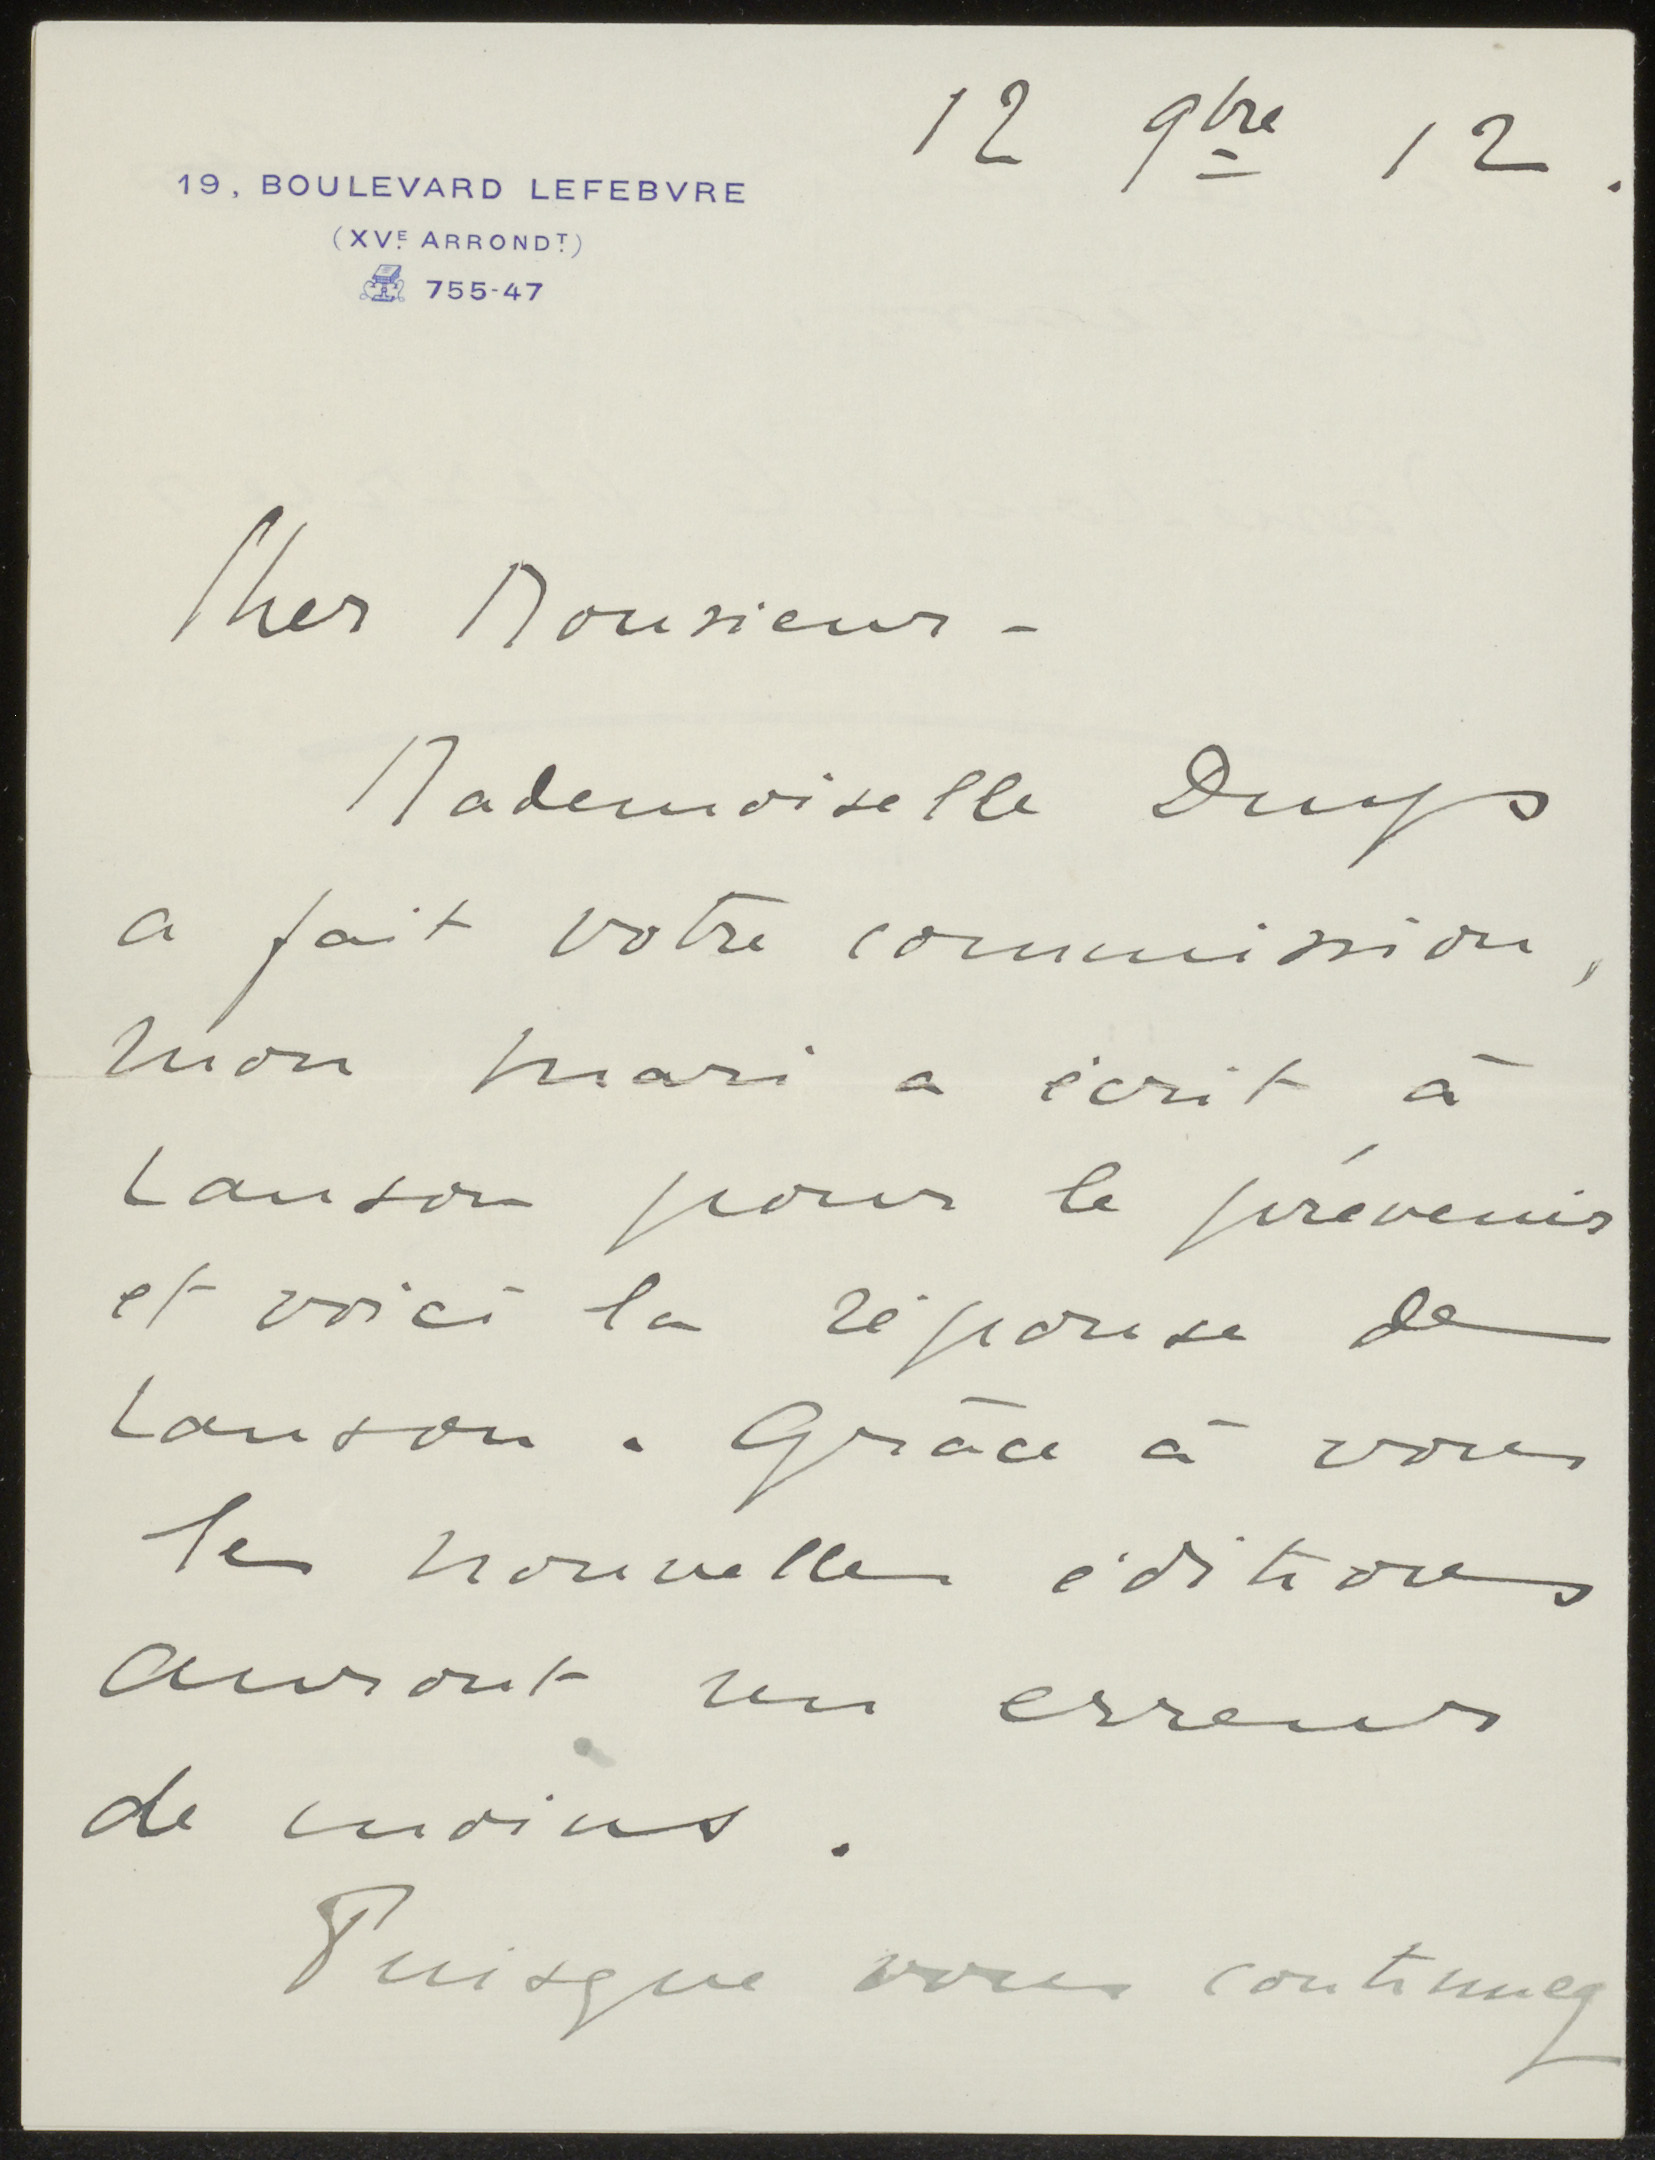 12 9bre 12.
19, BOULEVARD LEFEBVRE
(XVE ARRONDT)
755-47
Cher Monsieur -
Mademoiselle Duys
a fait votre commission,
mon mari a écrit à
Lanson pour le prévenir
et voici la réponse de
Lanson. Grâce à vous
les nouvelles éditions
auront un erreur
de moins.
Puisque vous continuez